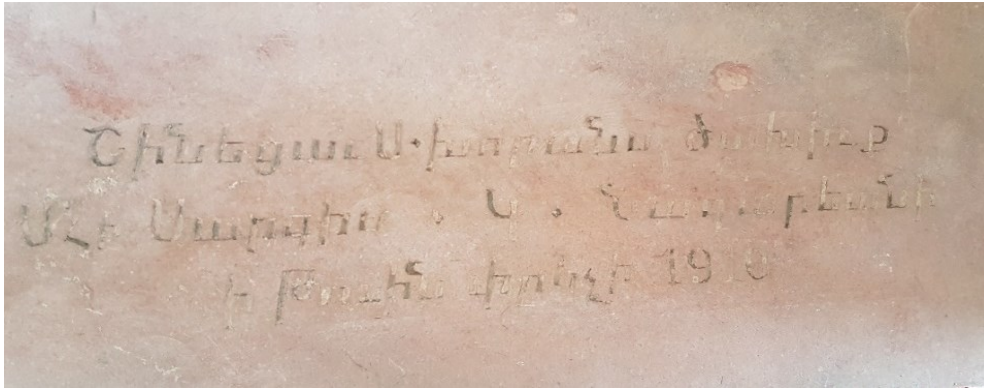 Շինեցաւ Ս. խորանս ծախիւք
Մհ. Սարգիս . Կ . Նազարեանի
ի Թուին փրկչի 1910